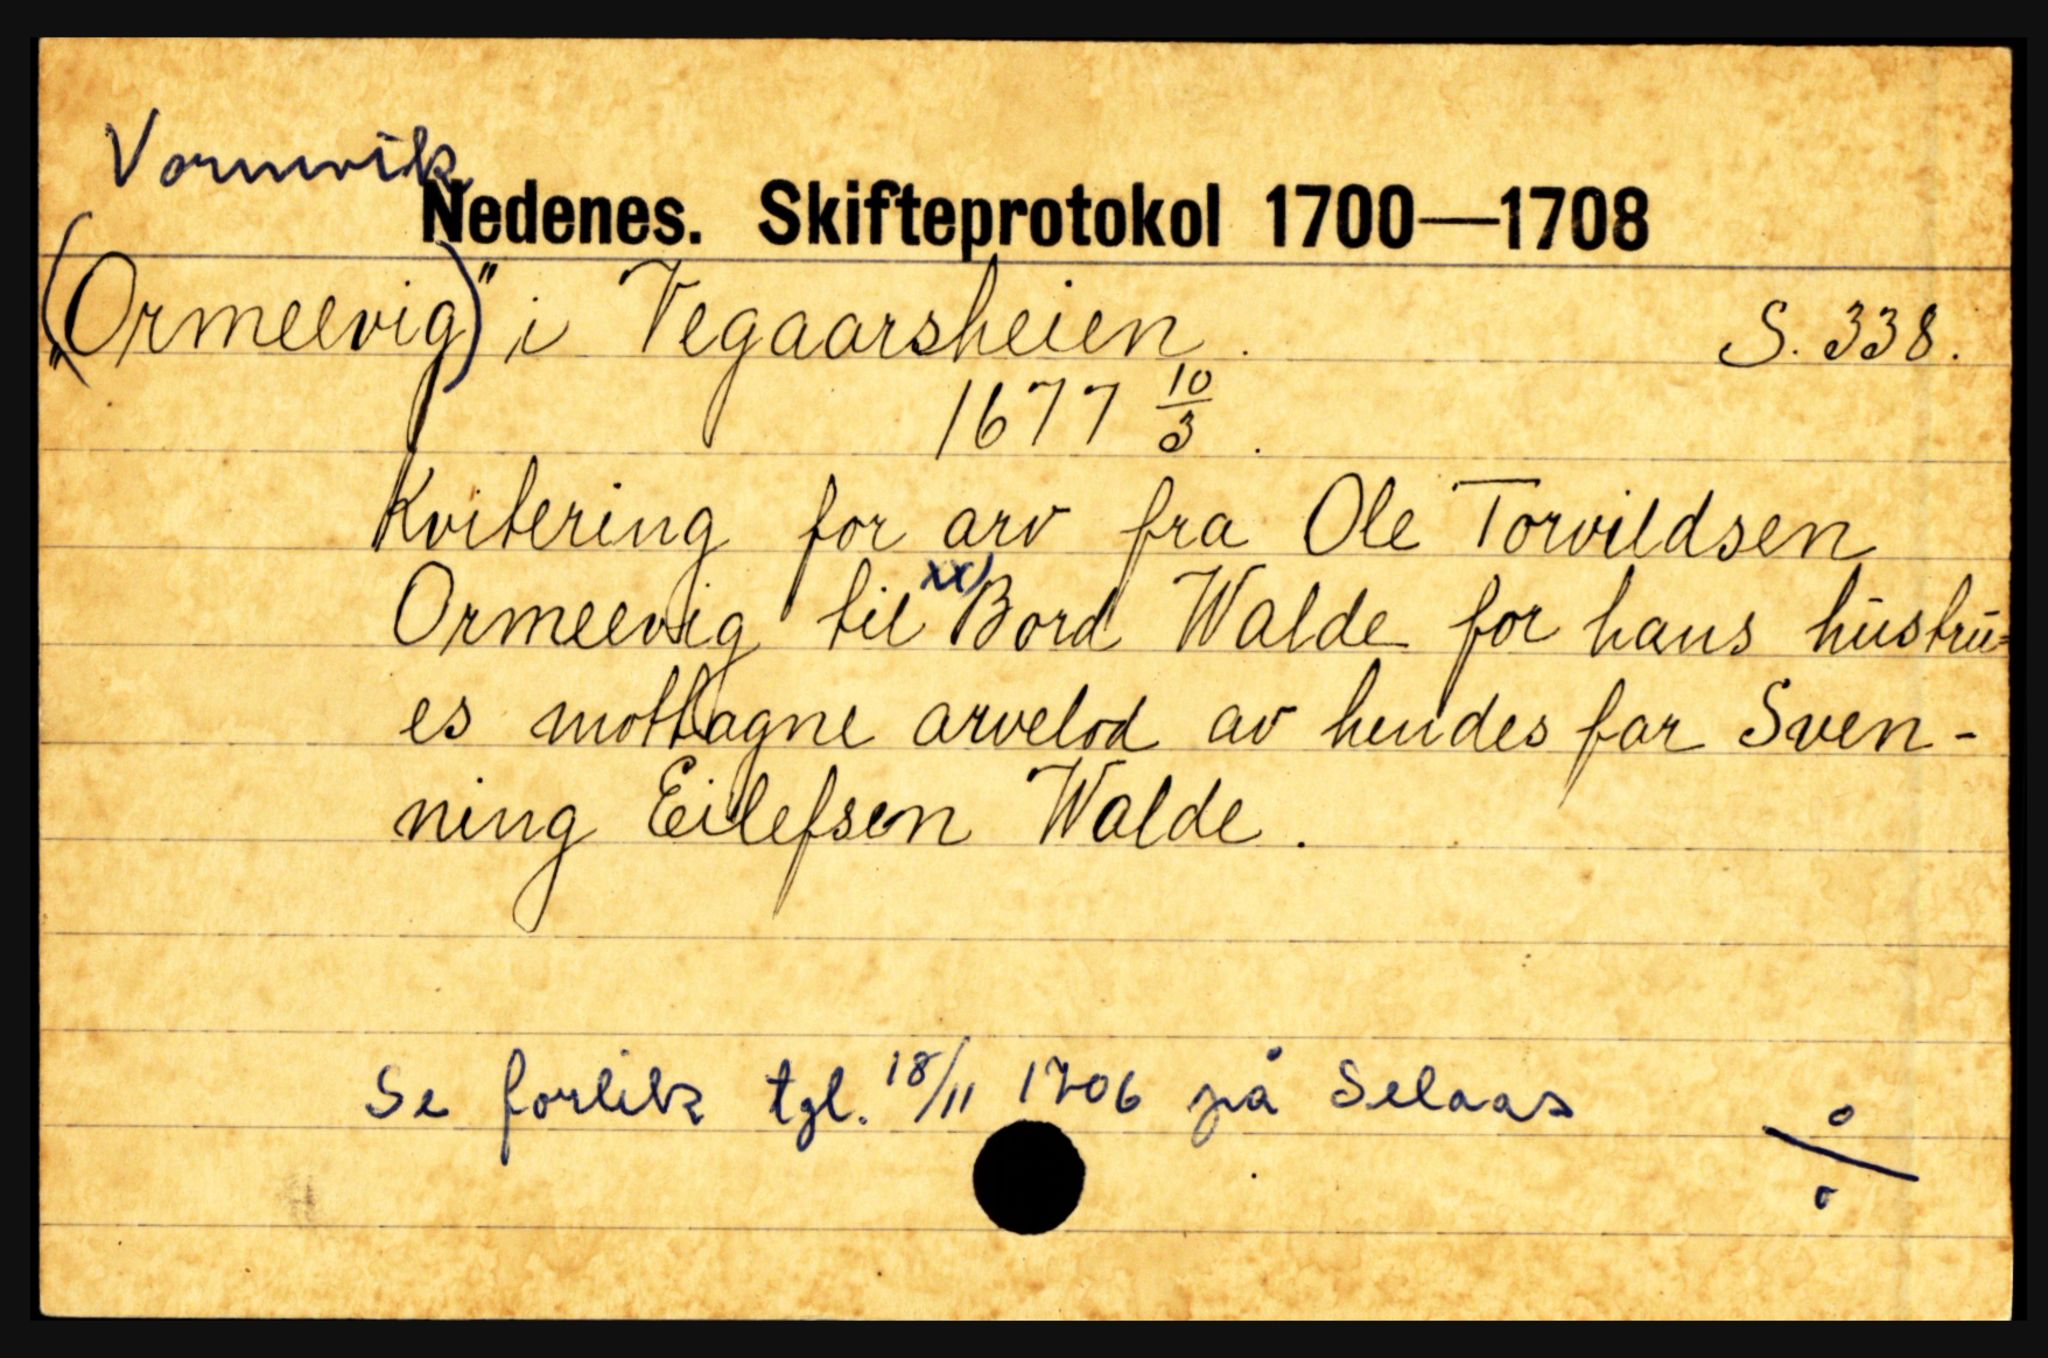 Vormvik
Nedenes. Skifteprotokol 1700—1708
(„Ormeevig)" i Vegaarsheien. S. 338.
1677 10/3.
Kvitering for arv fra Ole Torvildsen
Ormeevig til xx) Bord Walde for hans hústrú=
es mottagne arvelod av hendes far Sven-
ning Eilefsen Walde.
Se forlik tgl. 18/11 1706 på Selaas